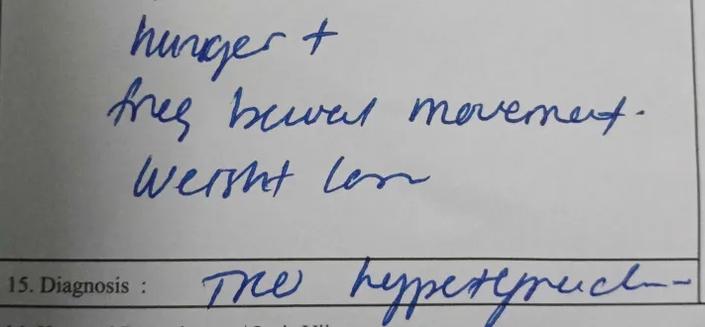 hunger +
freq bowel movement.
Weight loss
15. Diagnosis : TRO